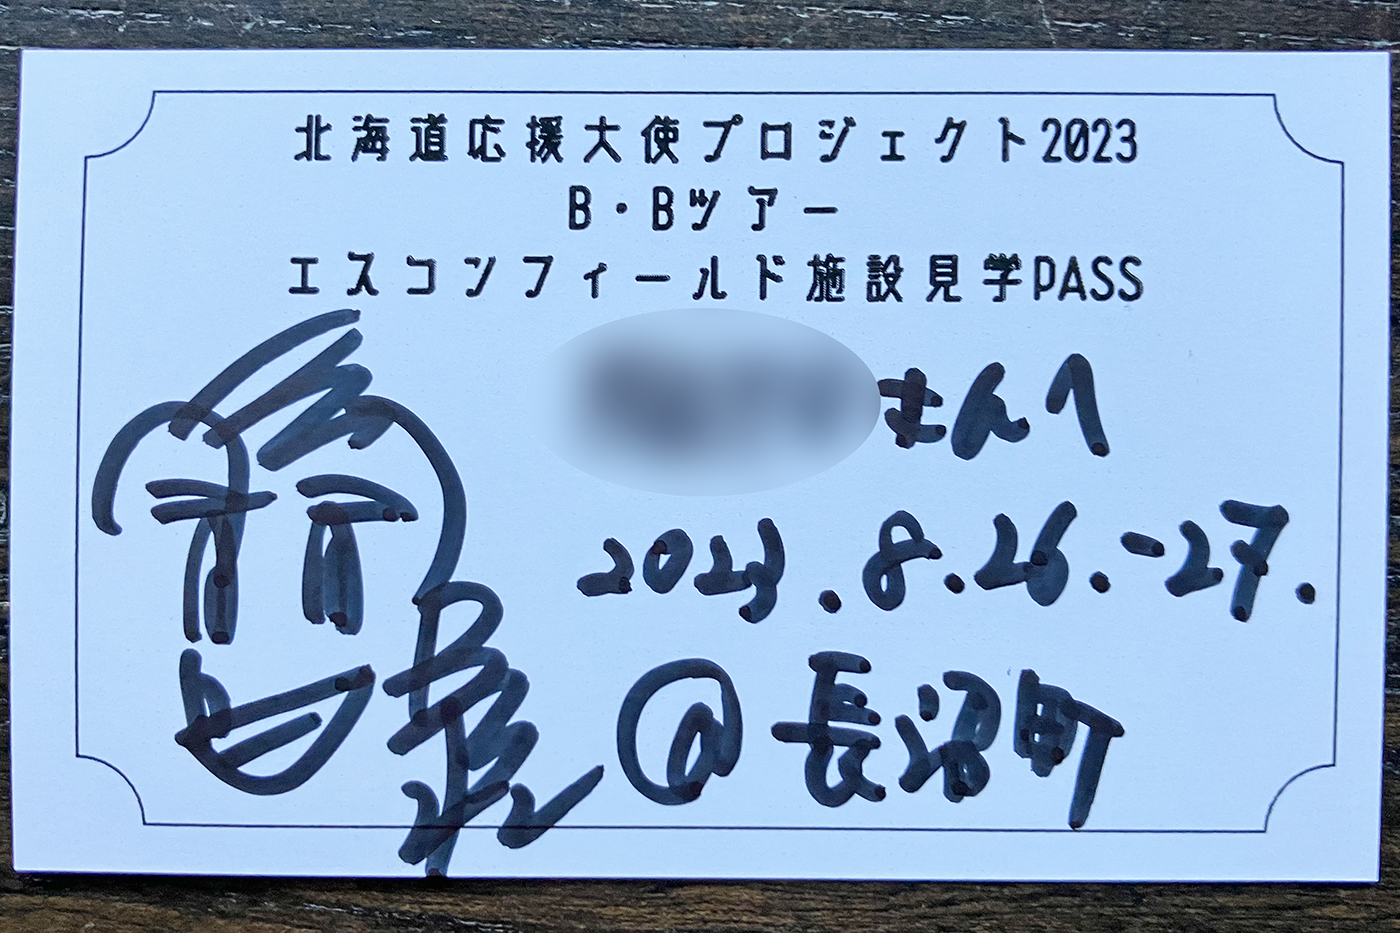 北海道応援大使プロジェクト2023
B・Bツアー
エスコンフィールド施設見学PASS
さんへ
2023.8.26.-27.
@長沼町